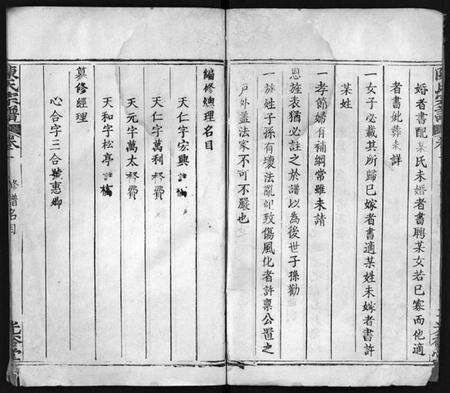 婚者書配某氏未婚者書聘某女若已寡而他適
者書妣葬未詳
一女子必載其所歸已嫁者書適某姓未嫁者書許
某姓
一孝節婦有補綱常雖未請
恩旌表猶必註之於譜以為後世子孫勸
一族姓子孫有壞法亂紀致傷風化者許稟公置之
戶外蓋法家不可不嚴也
編修總理名目
天仁字宏興
天仁字萬利 費
天元字萬太 費
天和字松亭
纂修經理
心合字三合號惠卿
陳氏宗譜 卷 修譜名目